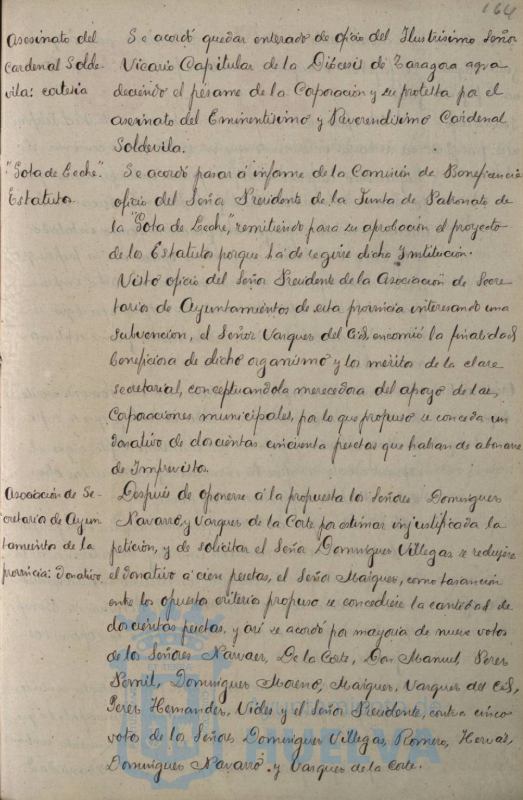 164
Asesinato del
Cardenal Solde-
vila: cortesia
Se acordó quedar enterado de oficio del Ilustrisimo Señor
Vicario Capitular de la Diócesis de Zaragoza agra
deciendo el pésame de la Coporación y su protesta por el
asesinato del Eminentisimo y Reverendisimo Cardenal
Soldevila.
"Gota de Leche".
Estatutos
Se acordó pasar á informe de la Comisión de Beneficencia
oficio del Señor Presidente de la Junta de Patronato de
la "Gota de Leche", remitiendo para su aprobación el proyecto
de los Estatutos porque ha de regirse dicha Institución.
Visto oficio del Señor Presidente de la Asociación de Secre
tarios de Ayuntamientos de esta provincia interesando una
subvención, el Señor Vazques del Cid, encomió la finalidad
beneficiosa de dicho organismo y los méritos de la clase
secretarial, conceptuandola merecedora del apoyo de las
Corporaciones municipales, por lo que propuso se conceda un
donativo de doscientas cincuenta pesetas que habian de abonarse
de Imprevistos.
Asociación de Se-
cretarios de Ayun
tamientos de la
provincia: donativo
Después de oponerse á la propuesta los Señores Dominguez
Navarro, y Vazques de la Corte por estimar injustificada la
petición, y de solicitar el Señor Dominguez Villegas se redujese
el donativo á cien pesetas, el Señor Maiquez, como transacción
entre los opuestos criterios propuso se concediese la cantidad de
doscientas pesetas, y así se acordó por mayoria de nueve votos
de los Señores Narvaez, De la Corte, Don Manuel, Perez
Domínguez Moreno, Maiquez, Vazques del Cid,
Perez Hernandez, Vides y el Señor Presidente, contra cinco
votos de los Señores Dominguez Villegas, Romero, Hervas,
Dominguez Navarro y Vazques de la Corte.
HUELVA